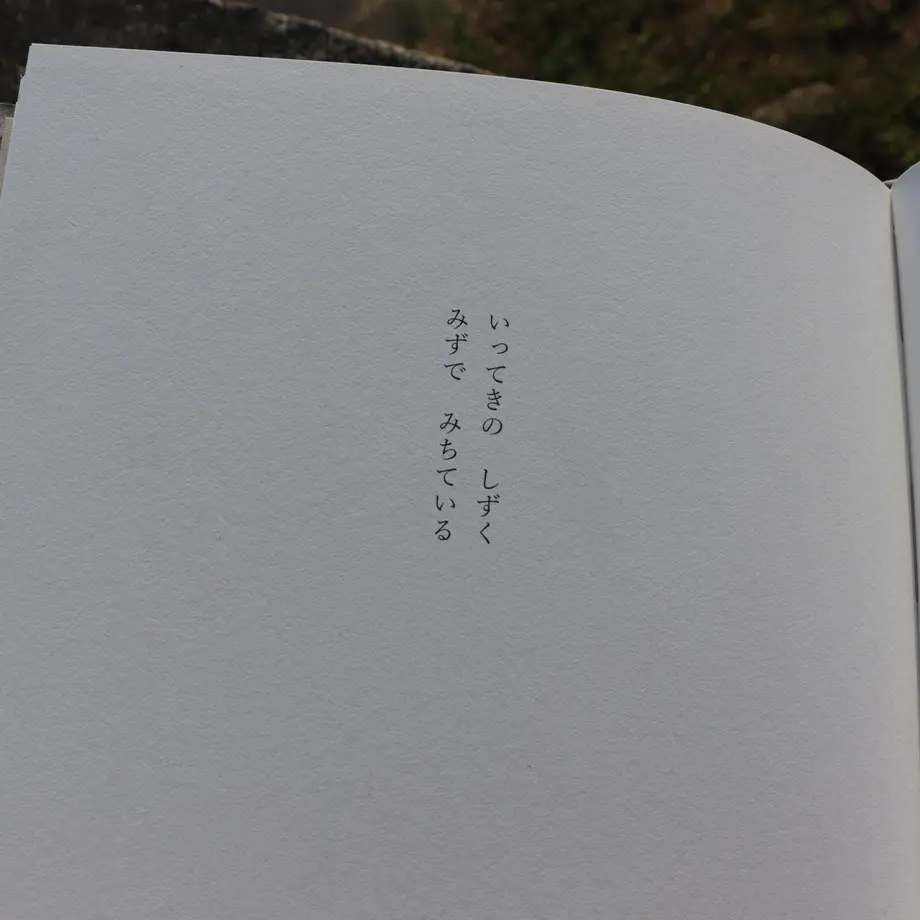 いってきの　しずく
みずで　みちている